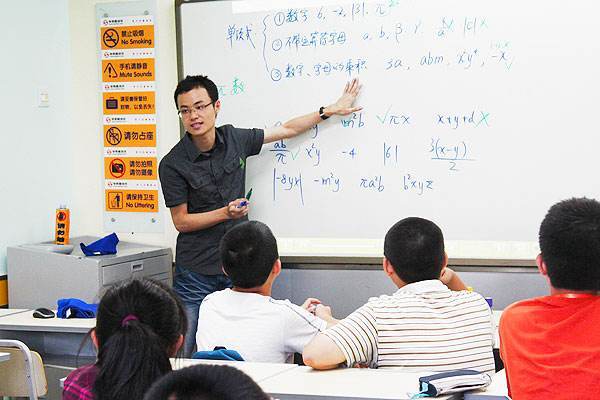 禁止吸烟
No Smoking
手机请静音
Mute Sounds
请勿占座
请勿拍照
请勿摄像
请保持卫生
No Littering
单项式
① 数字 6, -2, |3|, π
② 不带运算符字母 a, b, β, γ |c| X
③ 数字、字母的乘积 3a, abm, x²y⁴, -x
元 数
m²b √ πx x+y+d X
ab/π √ x²y -4 |6| 3(x-y)/2
|-8yx| -m²y πa²b b²xyz